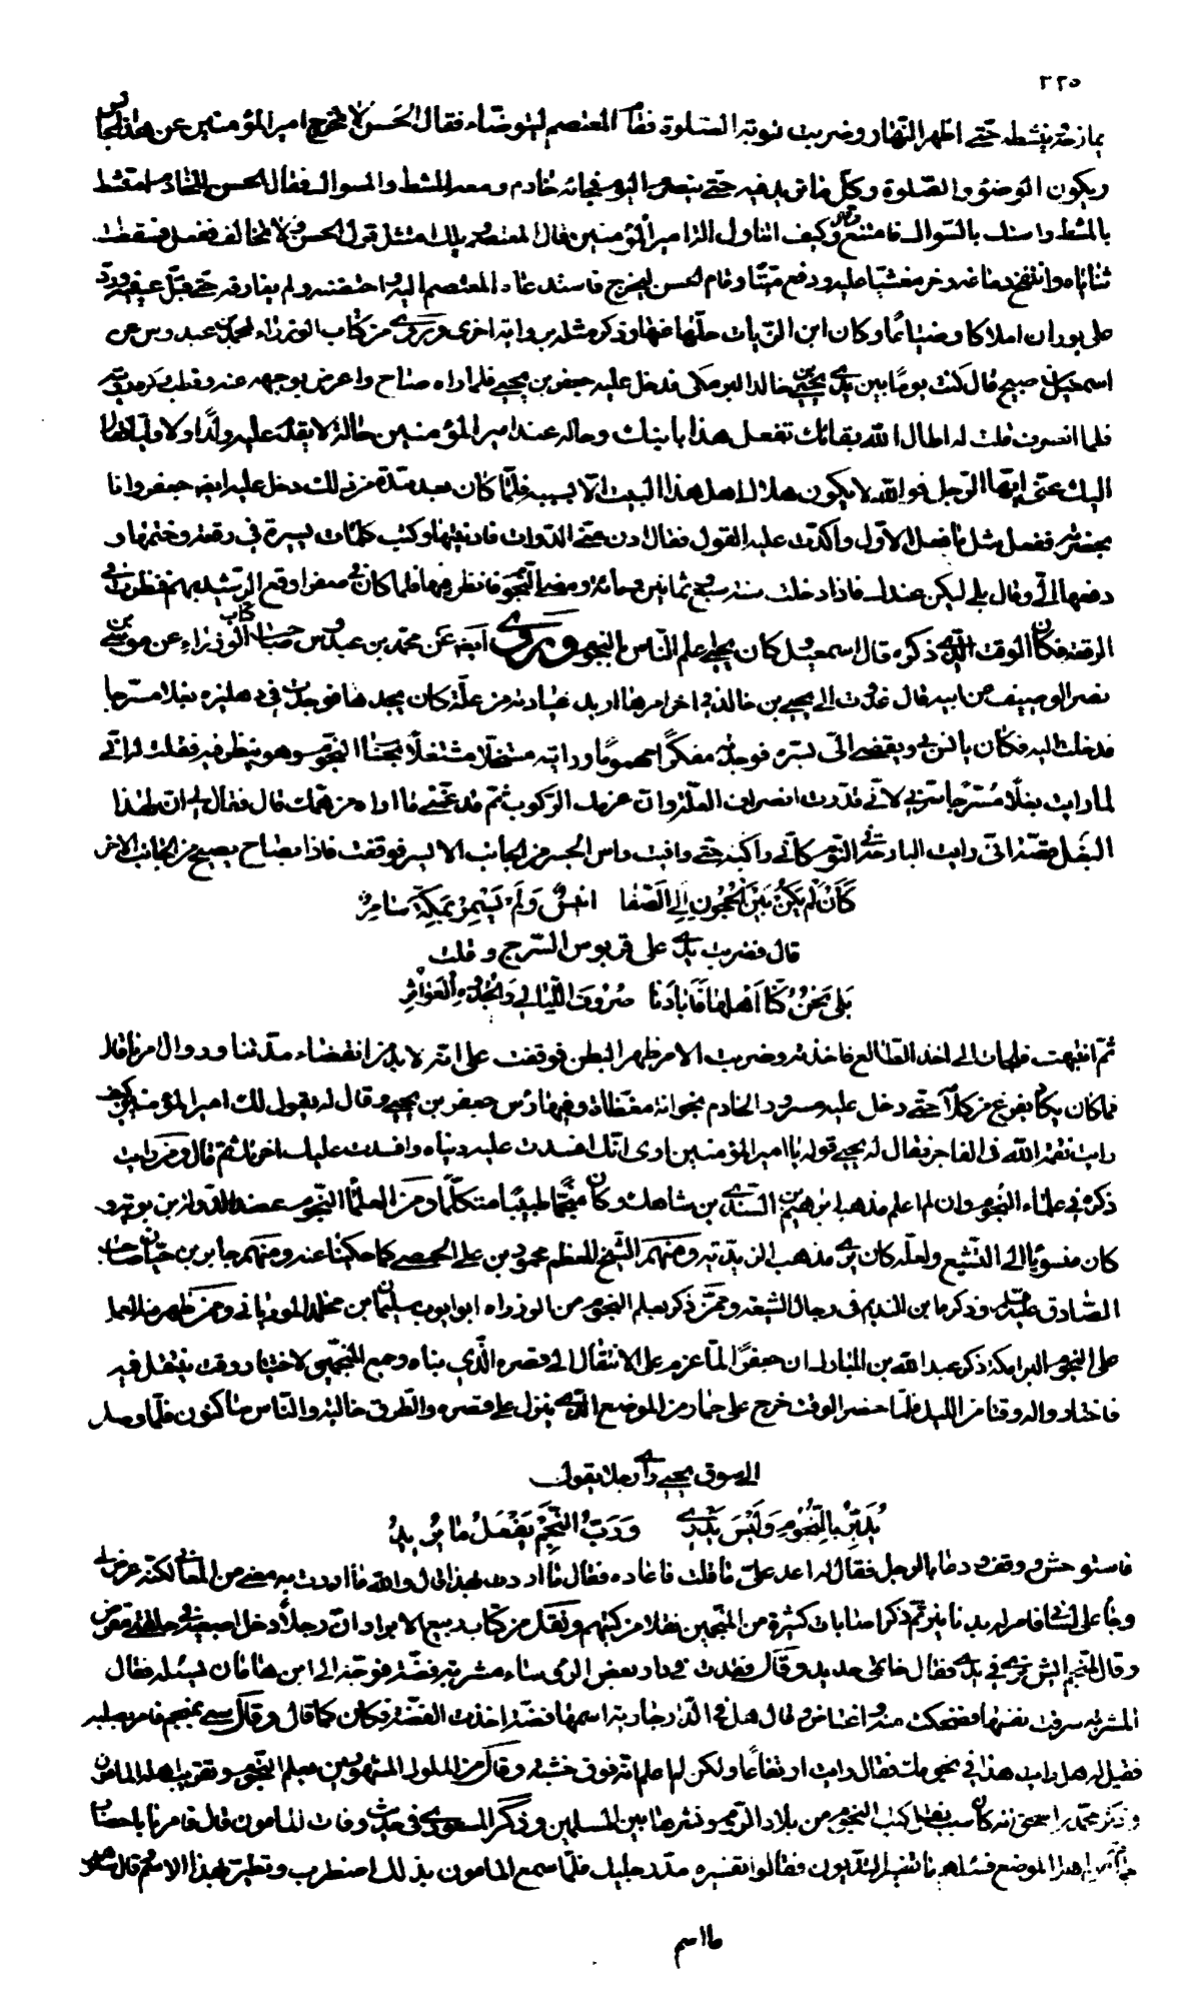 ٢٢٥
يمازحه وينشطه حتى اظهر النهار وضربت نوبة الصلوة فقام المعتصم ليتوضاء فقال الحسن لا يخرج امير المؤمنين عن هذا المجلس
ويكون الوضوء والصلوة وكل ما يريد فيه حتى ينصرم اليوم فجائه خادم ومعه المشط والمسواك فقال الحسن للخادم امتشط
بالمشط واستك بالسواك فامتنع وقال وكيف اتناول الة امير المؤمنين فقال المعتصم ويلك امتثل قول الحسن ولا تخالف ففعل فسقطت
ثناياه وانتفخ دماغه وخر مغشيا عليه ورفع ميتا وقام الحسن ليخرج فاستدعاه المعتصم اليه واحتضنه ولم يفارقه حتى قبل عينيه ورد
على بوران املاكا وضياعا وكان ابن الزيات حلها عنها وذكر مثله برواية اخرى وروى من كتاب الوزراء لمحمد بن عبدوس عن
اسمعيل بن صبيح قال كنت يوما بين يدي يحيى بن خالد البرمكي فدخل عليه جعفر بن يحيى فلما راه صاح واعرض بوجهه عنه وقطب وكره رويته
فلما انصرف قلت له اطال الله بقائك تفعل هذا بابنك وحاله عند امير المؤمنين حالة لا يقدم عليه ولدا ولا وليا فقال
اليك عني ايها الرجل فوالله لا يكون هلاك اهل هذا البيت الا بسببه فلما كان بعد مدة من ذلك دخل عليه ايضا جعفر وانا
بحضرته ففعل مثل ما فعل الاول واكدت عليه القول فقال ادن مني الدواة فادنيتها وكتب كلمات يسيرة في رقعة وختمها و
دفعها الي وقال بلى ليكن عندك فاذا دخلت سنة سبع وثمانين ومائة ومضى المحرم فانظر فيها فلما كان في صفر اوقع الرشيد بهم فنظرت في
الرقعة فكان الوقت الذي ذكره قال اسمعيل كان يحيى اعلم الناس بالنجوم وروى ايضا عن محمد بن عبدوس صاحب كتاب الوزراء عن موسى بن
نصر الوصيف عن ابيه قال غدوت الى يحيى بن خالد في اخر امرهم اريد عيادته من علة كان يجدها فوجدت في دهليزه بغلا مسرجا
فدخلت اليه فكان يانس بي ويفضي الي بسره فوجدته مفكرا مهموما ورايته مشتغلا بحساب النجوم وهو ينظر فيه فقلت له اني
لما رايت بغلا مسرجا سرني لاني قدرت انصراف العلة وان عزمك الركوب ثم قد غمني ما اراه من همك قال فقال لي ان لهذا
البغل قصة اني رايت البارحة في النوم كاني راكبه حتى وافيت راس الجسر من الجانب الايسر فوقفت فاذا بصائح يصيح من الجانب الاخر
كان لم يكن بين الحجون الى الصفا انيس ولم يسمر بمكة سامر
قال فضربت يدي على قربوس السرج وقلت
بلى نحن كنا اهلها فابادنا صروف الليالي والجدود العواثر
ثم انتبهت فلجات الى اخذ الطالع فاخذته وضربت الامر ظهر البطن فوقفت على انه لا بد من انقضاء مدتنا وزوال امرنا قال
فما كان يكاد يفرغ من كلامه حتى دخل عليه مسرور الخادم بجوانة مغطاة وفيها راس جعفر بن يحيى وقال له يقول لك امير المؤمنين كيف
رايت نقمة الله في الفاجر فقال له يحيى قولي له يا امير المؤمنين ارى انك افسدت عليه دنياه وافسدت عليك اخرتك ثم قال ومن رايت
ذكره في علماء النجوم وان لم اعلم مذهبه ابرهيم بن السندي بن شاهك وكان منجما طبيبا متكلما ومن العلماء بالنجوم عضد الدولة بن بويه و
كان منسوبا الى التشيع ولعله كان يرى مذهب الزيدية ومنهم الشيخ المعظم محمود بن علي الحمصي كما حكيناه عنه ومنهم جابر بن حيان صاحب
الصادق عليه السلام وذكره ابن النديم في رجال الشيعة وممن ذكر بعلم النجوم من الوزراء ابو ايوب سليمان بن مخلد المورياني وممن ظهر منه العمل
على النجوم البرامكة ذكر عبد الله بن المبارك ان جعفرا لما عزم على الانتقال الى قصره الذي بناه وجمع المنجمين لاختيار وقت ينتقل فيه
فاختاروا له وقتا من الليل فلما حضر الوقت خرج على حمار من الموضع الذي ينزل على قصره والطرق خالية والناس ساكنون فلما وصل
الى سوق يحيى راى رجلا يقول
يدبر بالنجوم وليس يدري ورب النجم يفعل ما يريد
فاستوحش ووقف ودعا بالرجل فقال له اعد علي ما قلت فاعاده فقال ما اردت بهذا قال والله ما اردت به معنى من المعاني لكنه عرض لي
وجاء على لساني فامر له بدنانير ثم ذكر اصابات كثيرة من المنجمين نقلا من كتبهم ونقل من كتاب ربيع الابرار ان رجلا ادخل اصبعيه في حلقتي مقراض
وقال لمنجم ايش ترى في يدي فقال خاتمي حديد وقال فقدت في دار بعض الرؤساء مشربة فضة فوجه الى ابن ماهان يسئله فقال
المشربة سرقت نفسها فضحك منه واغتاظ وقال هل في الدار جارية اسمها فضة اخذت الفضة فكان كما قال وقال سعي بمنجم فامر بصلبه
فقيل له هل رايت هذا في نجومك فقال رايت ارتفاعا ولكن لم اعلم انه فوق خشبة وقال من الملوك المشهورين بعلم النجوم وتقريب اهله المامون
وذكر محمد بن اسحق انه كان سبب نقل كتب النجوم من بلاد الروم ونشرها بين المسلمين وذكر المسعودي في حديث وفات المامون قال فامرنا باحضار
هذا الموضع فسئلهم ما تفسير البديون فقالوا تفسيره مد رجليك فلما سمع المامون بذلك اضطرب وتطير بهذا الاسم قال سلوهم
ما اسم